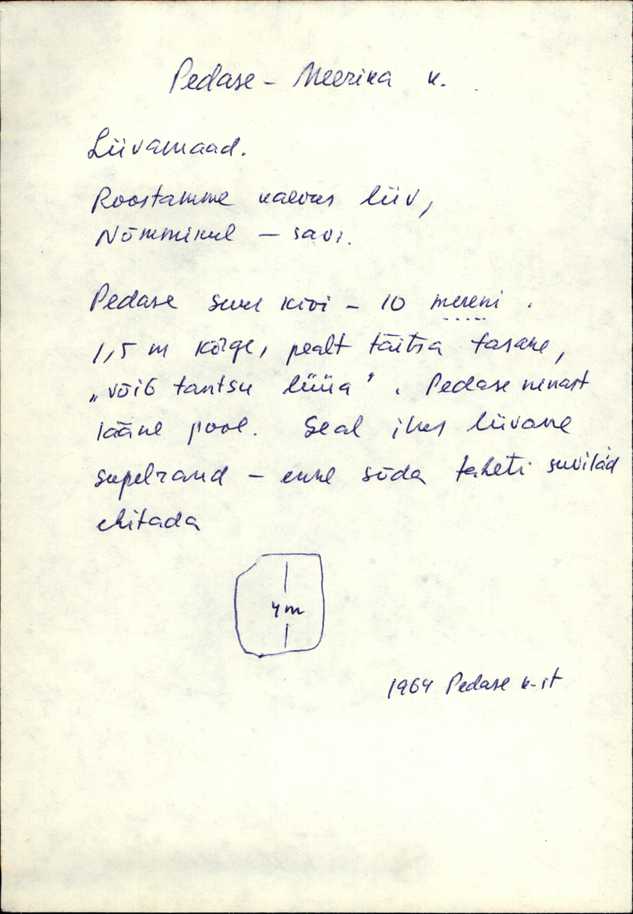 Pedase - Meerika k.
Liivamaad.
Roostamme kaevus liiv,
Nõmmikul - savi.
Pedase kivi - 10 mereni.
1,5 m kõrge, pealt täitsa tasane,
„võib tantsu lüüa”. Pedase ninast
lääne pool. Seal ilus liivane
supelrand - enne sõda taheti suvilaid
ehitada
4m
1964 Pedase k-st